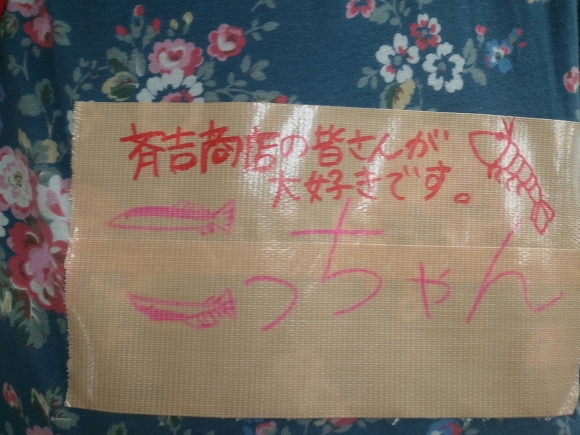 斉吉商店の皆さんが
大好きです。
こっちゃん